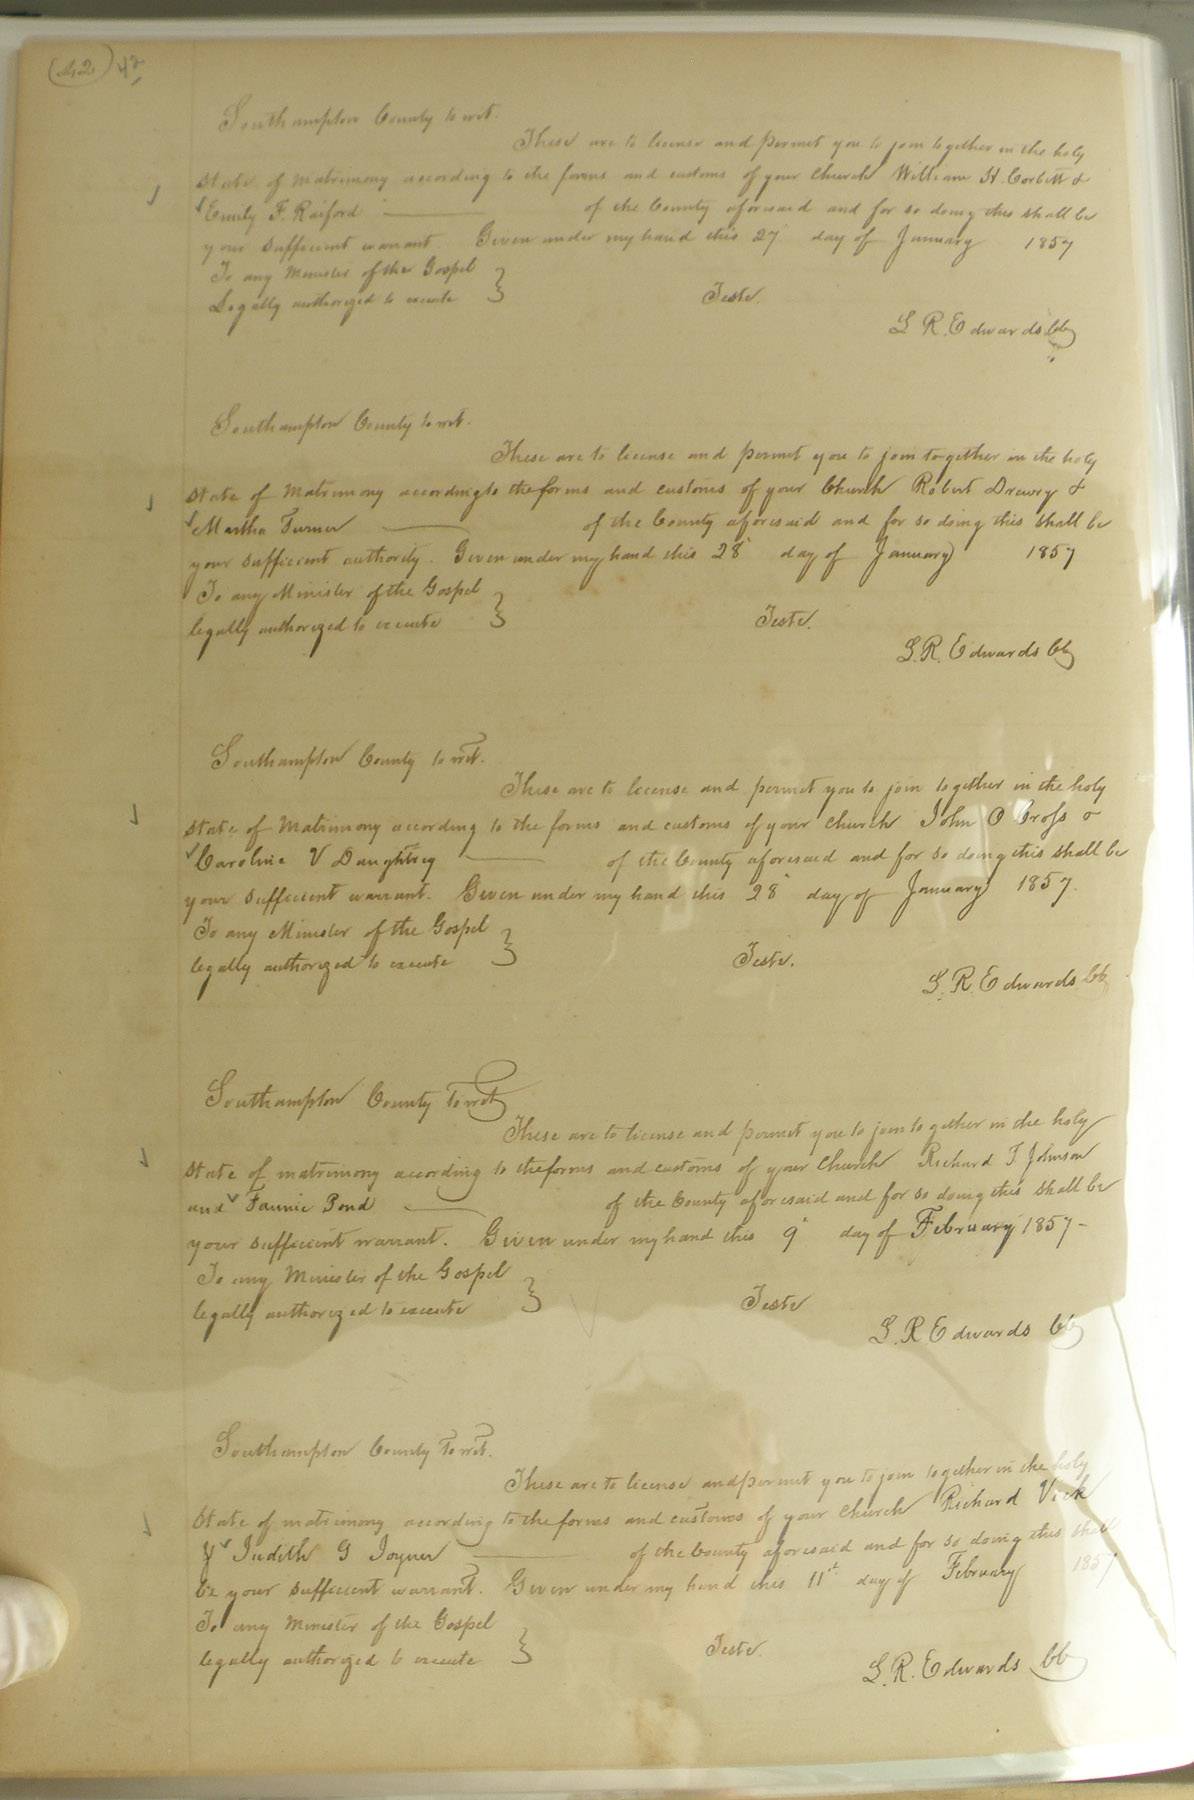 (42) 42
Southampton County to wit.
These are to license and permit you to join together in the holy
state of Matrimony according to the forms and customs of your Church William H. Corbitt &
Emily F. Raiford of the County aforesaid and for so doing this shall be
your sufficient warrant. Given under my hand this 27 day of January 1857
To any Minister of the Gospel
Legally authorized to execute } Teste.
L. R. Edwards CC
Southampton County to wit.
These are to license and permit you to join together in the holy
state of Matrimony according to the forms and customs of your Church Robert Drewry &
Martha Turner of the County aforesaid and for so doing this shall be
your sufficient authority. Given under my hand this 28 day of January 1857
To any Minister of the Gospel
legally authorized to execute } Teste.
L. R. Edwards CC
Southampton County to wit.
These are to license and permit you to join together in the holy
state of Matrimony according to the forms and customs of your Church John O Cross &
Caroline V Daughtrey of the County aforesaid and for so doing this shall be
your sufficient warrant. Given under my hand this 28 day of January 1857.
To any Minister of the Gospel
legally authorized to execute } Teste.
L. R. Edwards CC
Southampton County To wit
These are to license and permit you to join together in the holy
state of matrimony according to the forms and customs of your Church Richard T. Johnson
and Fannie Pond of the County aforesaid and for so doing this shall be
your sufficient warrant. Given under my hand this 9 day of February 1857-
To any Minister of the Gospel
legally authorized to execute } Teste
L. R. Edwards CC
Southampton County To wit.
These are to license and permit you to join together in the holy
State of matrimony according to the forms and customs of your Church Richard Vick
& Judith G Joyner of the County aforesaid and for so doing this shall
be your sufficient warrant. Given under my hand this 11th day of February 1857
To any Minister of the Gospel
legally authorized to execute } Teste.
L. R. Edwards CC